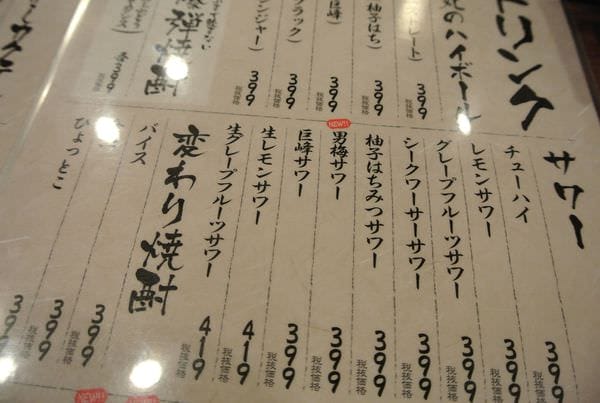 ドリンク
のハイボール
399
税抜価格
柚子はち)
399
税抜価格
巨峰)
399
税抜価格
ブラック)
399
税抜価格
ンジャー)
399
税抜価格
焼酎
各399
税抜価格
サワー
チューハイ
399
税抜価格
レモンサワー
399
税抜価格
グレープフルーツサワー
399
税抜価格
シークワーサーサワー
399
税抜価格
柚子はちみつサワー
399
税抜価格
NEW!!
男梅サワー
399
税抜価格
巨峰サワー
399
税抜価格
生レモンサワー
419
税抜価格
生グレープフルーツサワー
419
税抜価格
変わり焼酎
バイス
399
税抜価格
399
税抜価格
ひょっとこ
399
NEW!!